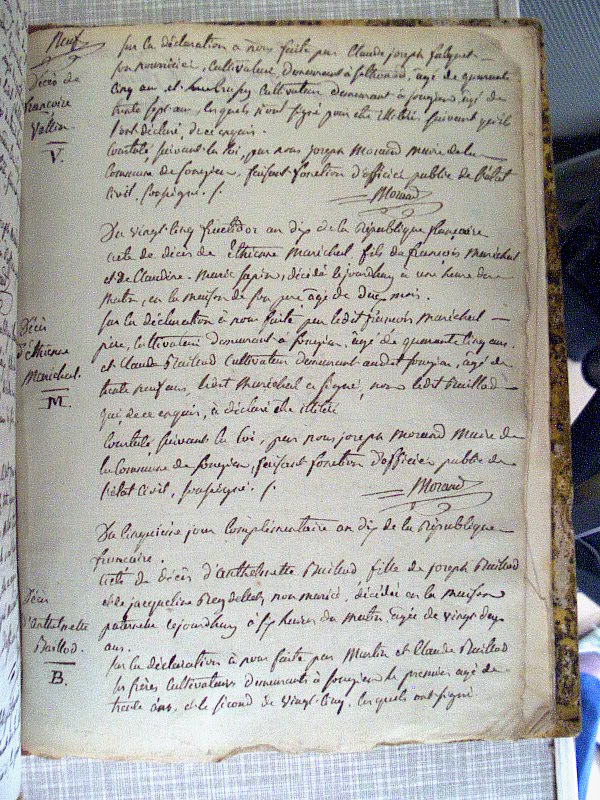 Neuf
Décès de
françoise
Vallin
V.
sur la déclaration à nous faite par Claude joseph
son nourricier, Cultivateur, demeurant à, agé de quarante
cinq ans et Cultivateur demeurant à songieu, âgé de
trente sept ans, lesquels n'ont signé pour être illiterés suivant qu'ils
l'ont déclaré, de ce enquis.
Constaté, suivant la loi, par nous joseph Morand Maire de la
Commune de songieu, faisant fonction d'officier public de l'état
Civil, soussigné. /.
Morand
Décès
d'Ethienne
Marechal.
M.
Du vingt-cinq fructidor an dix de la République française
acte de décès de Ethienne Maréchal, fils de françois Maréchal
et de Claudine-Marie, décédé le jourdhuy à une heure du
Matin, en la maison de son père âgé de deux mois.
sur la déclaration à nous faite par ledit francois Maréchal
père, Cultivateur demeurant à songieu, âgé de quarante cinq ans,
et Claude Baillod Cultivateur demeurant audit songieu, âgé de
trente neuf ans, ledit Maréchal a signé, non ledit Baillod
qui, de ce enquis, a déclaré être illiteré
Constaté suivant la loi, par nous joseph Morand Maire de
la Commune de songieu, faisant fonction d'officier public de
l'état Civil, soussigné. /.
Morand
Décès
d'Anthelmette
Baillod.
B.
Du Cinquième jour Complémentaire an dix de la République
francaise.
acte de décès d'anthelmette Baillod fille de joseph Baillod
et de jacqueline non mariée, décédée en la maison
paternelle cejourdhuy à sept heures du matin, agée de vingt deux
ans.
sur la déclaration à nous faite par Martin et Claude Baillod
ses frères Cultivateurs demeurants à songieu le premier agé de
trente ans, et le second de vingt-cinq, lesquels ont signé